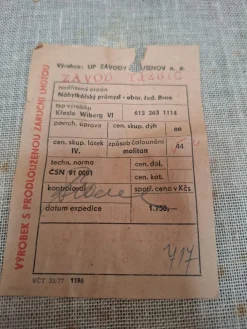 Výrobce: UP ZÁVODY n. p.
ZÁVOD
nadřízený orgán
Nábytkářský průmysl - obor. řed. Brno
typ výrobku
Křeslo Wiberg VI 615 263 1114
povrch. úprava cen. skup. dýh
cen. skup. látek způsob čalounění
IV. molitan 44
techn. norma cen. dal.
ČSN 91 0001 cen. kat.
kontroloval spotř. cena v Kčs
datum expedice 1.750,—
VČT 33-77 1186
VÝROBEK S PRODLOUŽENOU ZÁRUČNÍ LHŮTOU